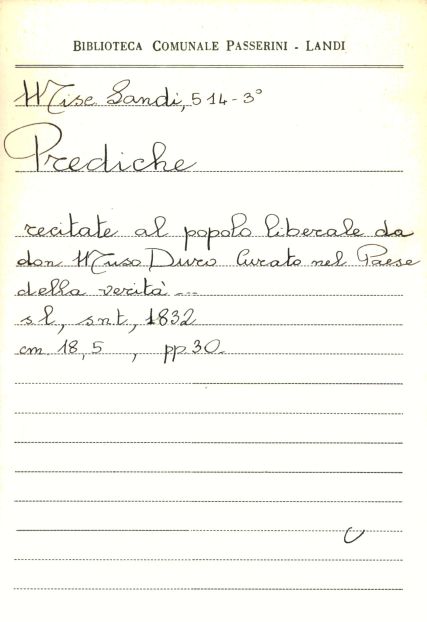 BIBLIOTECA COMUNALE PASSERINI - LANDI
Misc. Landi, 514-3°
Prediche
recitate al popolo liberale da
don Muso Duro Curato nel Paese
della verità ...
s.l., s.n.t., 1832
cm. 18,5 , pp. 30.
C